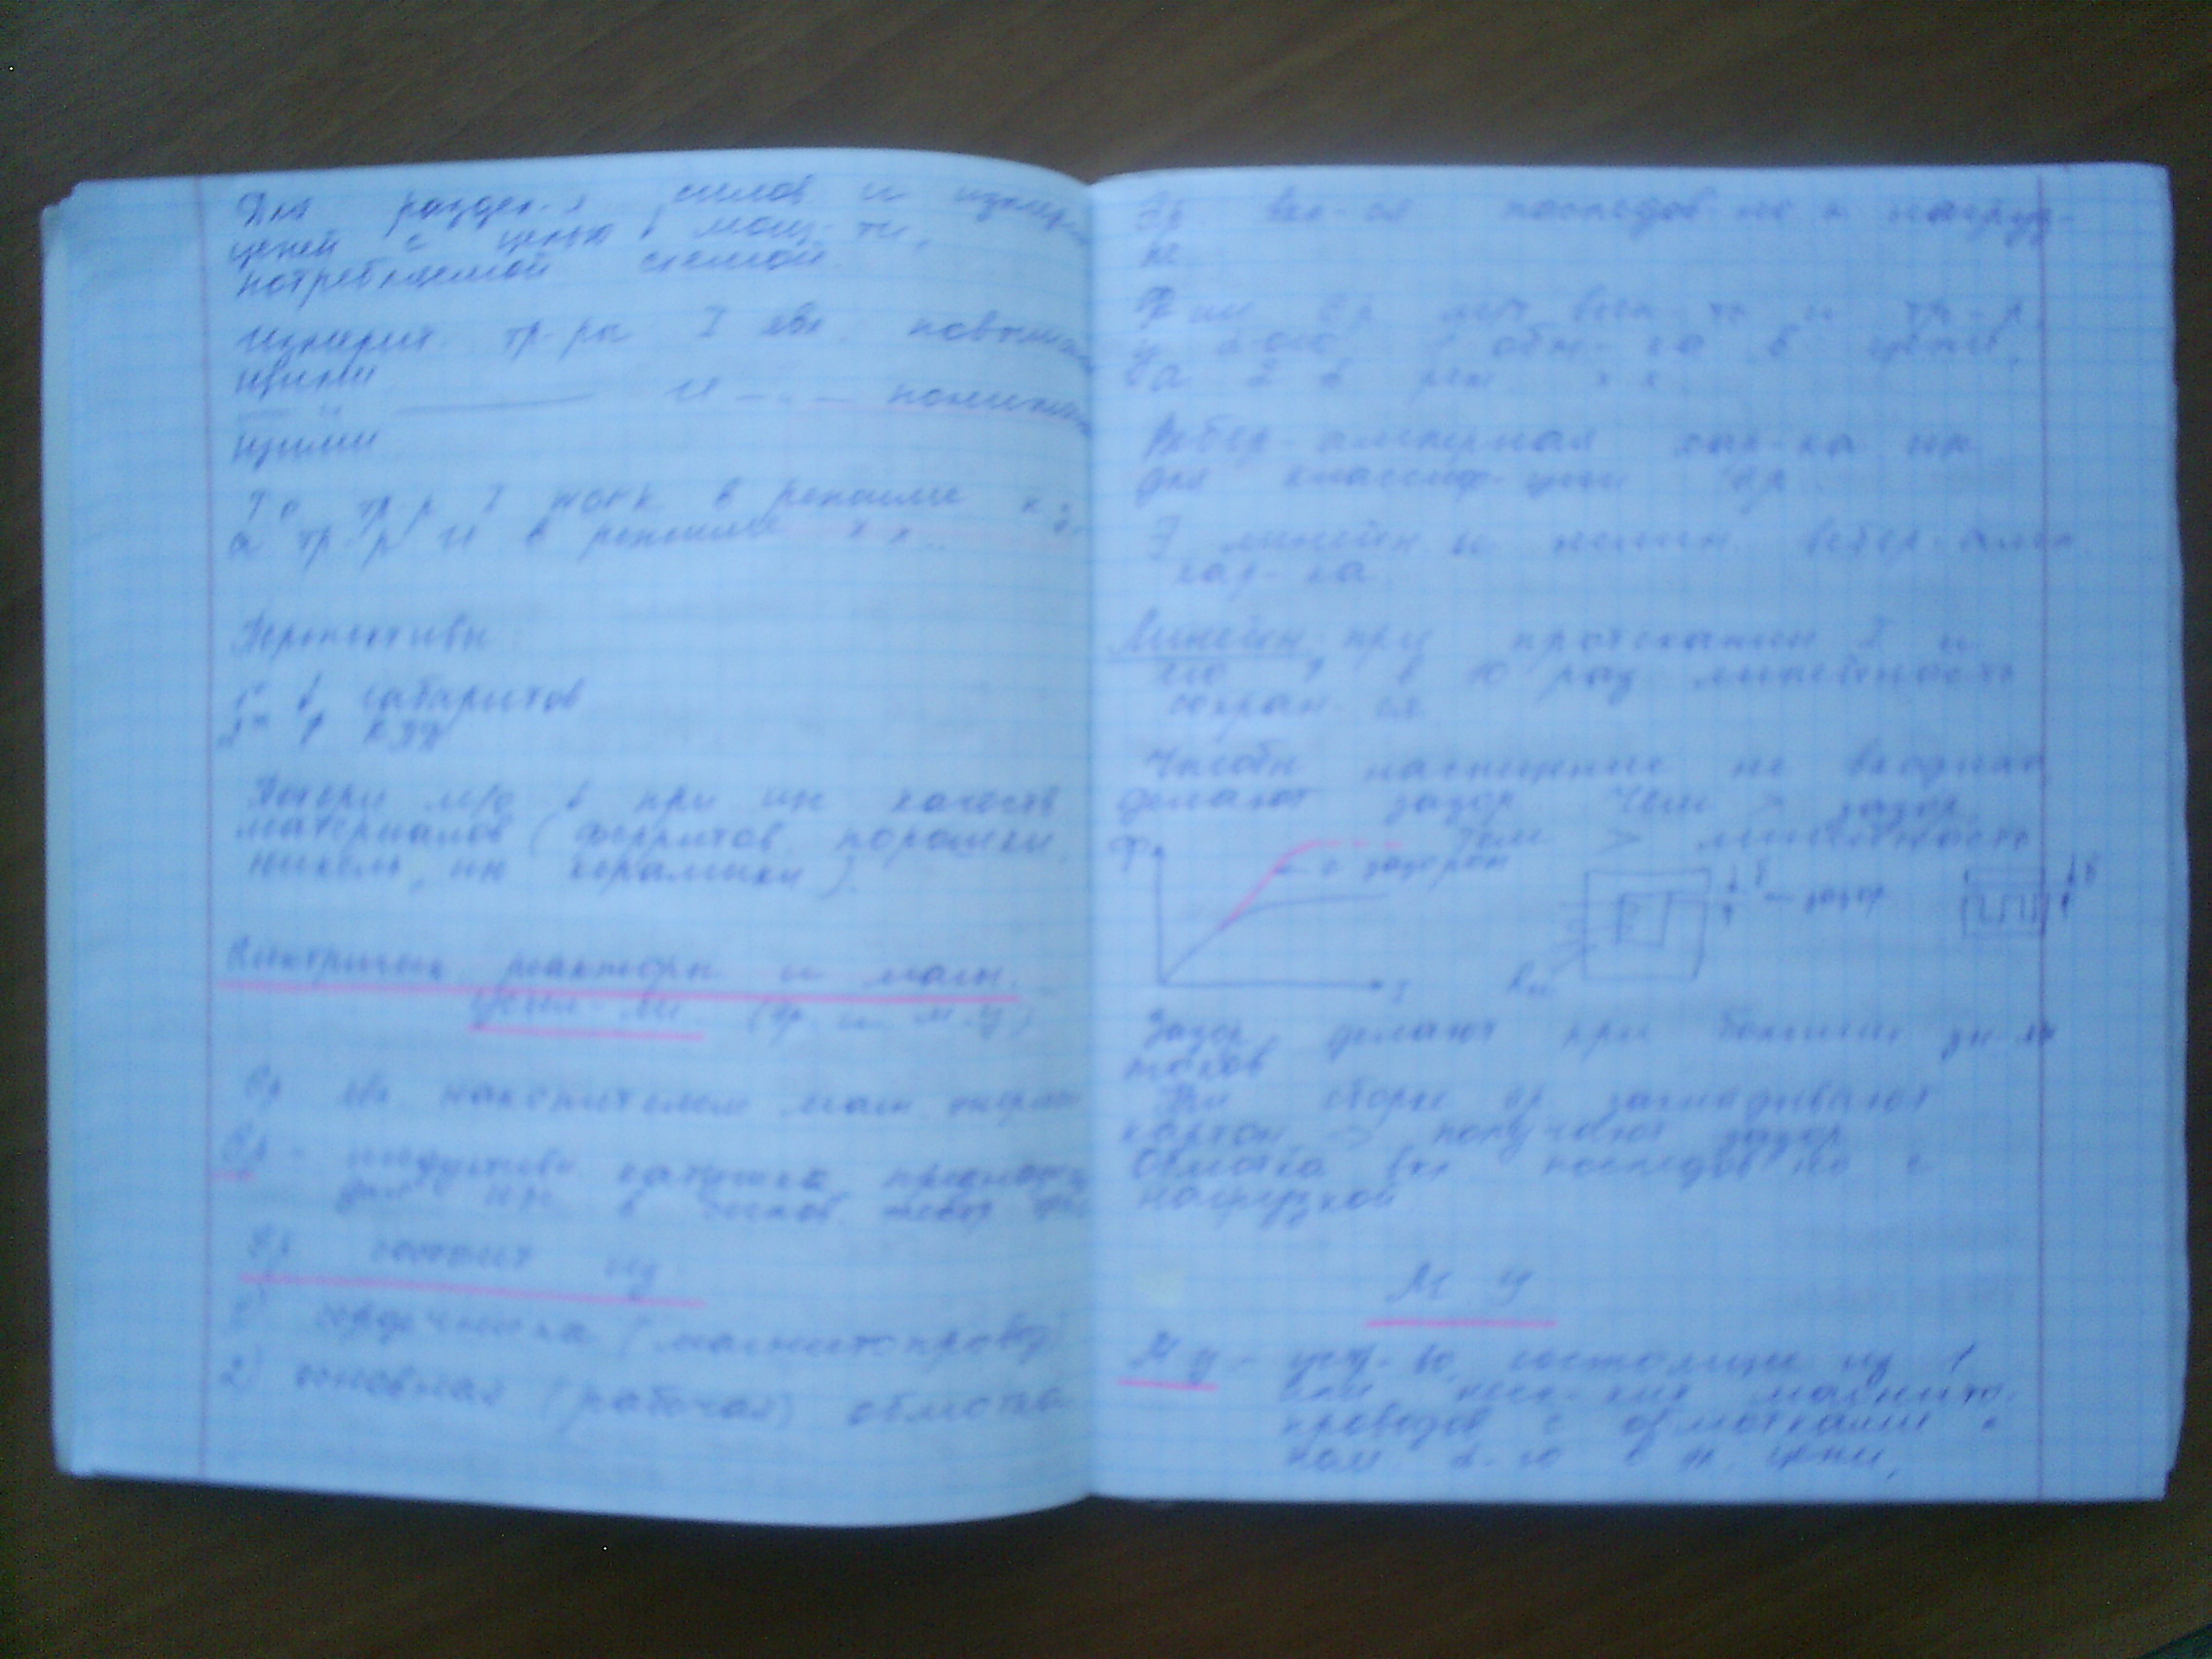 Для раздел-я силов и измерит
цепей с целью ↓ мощ-ти,
потребляемой схемой.
Измерит. тр-ры I явл. повыша
ющими
— " — U — " — понижаю
щими.
Т о тр-р I работ в режиме к з,
а тр-р U в режиме х х.
Перспективы:
1° ↓ габаритов
2° ↑ КПД
Потери ↓ при ис качеств
материалов (ферритов, порошки,
никель, керамики).
Электрич. реакторы и магн.
усил-ли (эр. и м.у)
Эр явл. накопителем магн. энергии
Эр - индуктивн. катушка предназ
для исп. в силов.
Эр состоит из
1) сердечника (магнитопровод)
2) основная (рабочая) обмотка
Эр. вкл-ся последов-но к нагруз-
ке.
Ф-ии эр мот вып-ть и тр-р,
у к-ого 1 обм-ка в цепи,
а 2 в реж х х.
Вебер-амперная хар-ка исп
для классиф-ции эр.
Ǝ линейн. и нелин. вебер-амп.
хар-ка.
Линейн. при протекании I и
его ↑ в 10 раз линейность
сохран-ся.
Чтобы насыщение не входило
делают зазор. Чем > зазор,
тем > линейность
Ф
с зазором
I
δ
зазор
δ
Зазор делают при больших зн-ях
токов
При сборке эр закладывают
картон -> получают зазор.
Обмотка вкл последов-но с
нагрузкой.
М У
М У - устр-во, состоящее из 1
или неск-ких магнито-
проводов с обмотками с
пом. к-ю в эл. цепи,